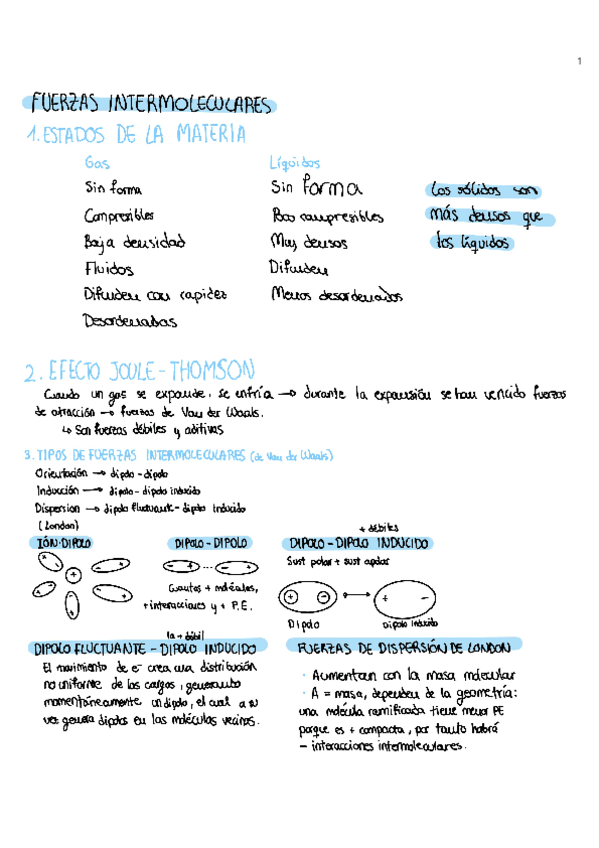 1
FUERZAS INTERMOLECULARES
1. ESTADOS DE LA MATERIA
Gas
Sin forma
Compresibles
Baja densidad
Fluidos
Difunden con rapidez
Desordenados
Líquidos
Sin forma
Poco compresibles
Muy densos
Difunden
Menos desordenados
Los sólidos son
más densos que
los líquidos
2. EFECTO JOULE-THOMSON
Cuando un gas se expande, se enfría → durante la expansión se han vencido fuerzas
de atracción → fuerzas de Van der Waals.
↳ Son fuerzas débiles y aditivas
3. TIPOS DE FUERZAS INTERMOLECULARES (de Van der Waals)
Orientación → dipolo - dipolo
Inducción → dipolo - dipolo inducido
Dispersion → dipolo fluctuante - dipolo inducido
(London)
IÓN-DIPOLO
DIPOLO - DIPOLO
Cuantas + moléculas,
+ interacciones y + P.E.
+ débiles
DIPOLO - DIPOLO INDUCIDO
Sust polar + sust apolar
Dipolo
Dipolo Inducido
la + débil
DIPOLO FLUCTUANTE - DIPOLO INDUCIDO
El movimiento de e- crea una distribución
no uniforme de las cargas, generando
momentáneamente un dipolo, el cual a su
vez genera dipolos en las moléculas vecinas.
FUERZAS DE DISPERSIÓN DE LONDON
· Aumentan con la masa molecular
· A = masa, dependen de la geometría:
una molécula ramificada tiene menor PE
porque es + compacta, por tanto habrá
- interacciones intermoleculares.